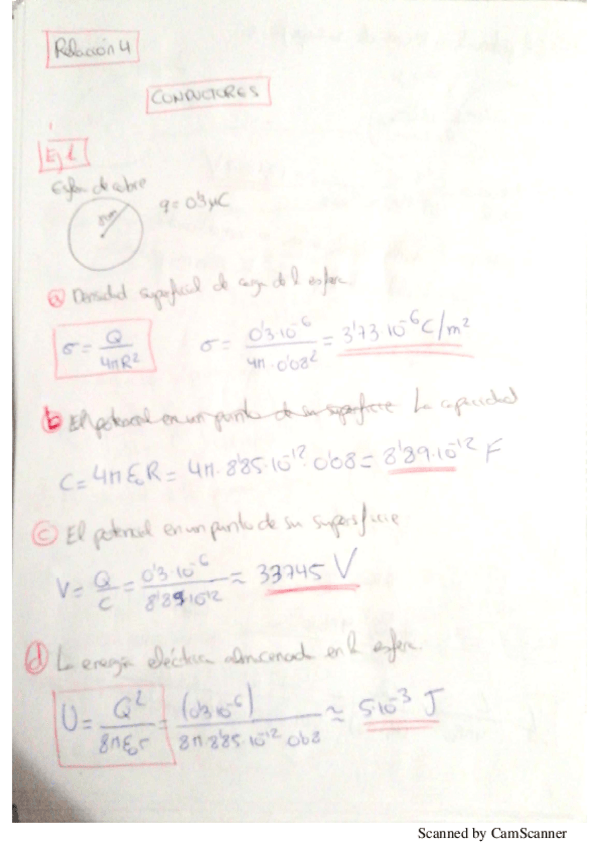 Relación 4
CONDUCTORES
Ej 1
Esfera de cobre
8cm
q = 0'3 μC
a Densidad superficial de carga de l esfera.
σ = Q / 4πR² σ = 0'3·10⁻⁶ / 4π·0'08² = 3'73·10⁻⁶ C/m²
b El potencial en un punto de su superficie La capacidad
C = 4πε₀R = 4π·8'85·10⁻¹²·0'08 = 8'89·10⁻¹² F
c El potencial en un punto de su superficie
V = Q / C = 0'3·10⁻⁶ / 8'89·10⁻¹² ≈ 33745 V
d La energía eléctrica almacenada en l esfera.
U = Q² / 8πε₀r = (0'3·10⁻⁶) / 8π·8'85·10⁻¹²·0'08 ≈ 5·10⁻³ J
Scanned by CamScanner